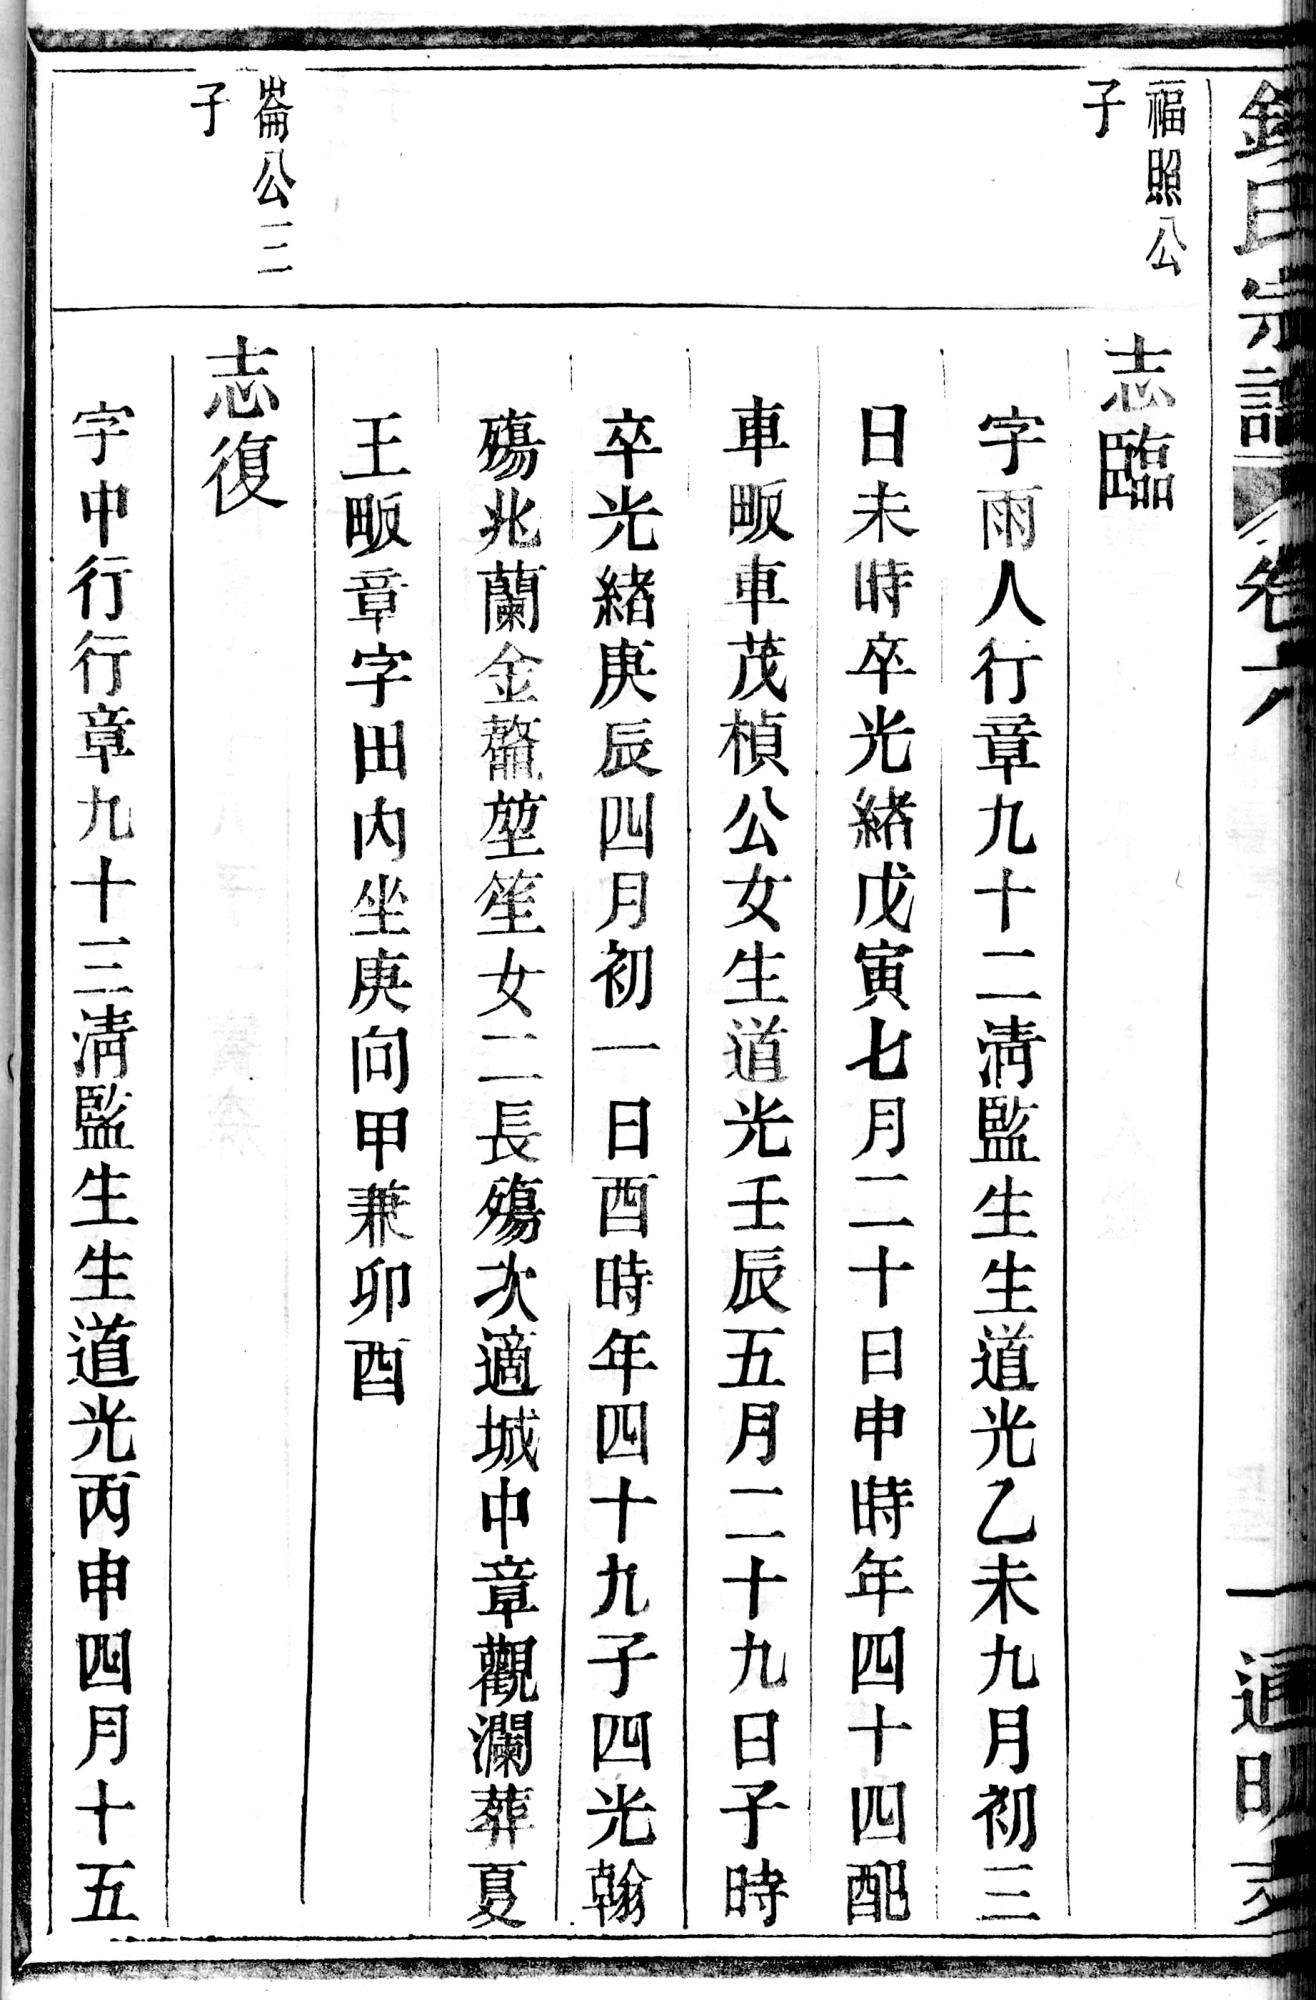 氏宗譜
卷六
一
通明支
福照公
子
志臨
字雨人行章九十二淸監生生道光乙未九月初三
日未時卒光緒戊寅七月二十日申時年四十四配
車畈車茂楨公女生道光壬辰五月二十九日子時
卒光緒庚辰四月初一日酉時年四十九子四光翰
殤兆蘭金鼇堃笙女二長殤次適城中章觀瀾葬夏
王畈章字田內坐庚向甲兼卯酉
崙公三
子
志復
字中行行章九十三淸監生生道光丙申四月十五